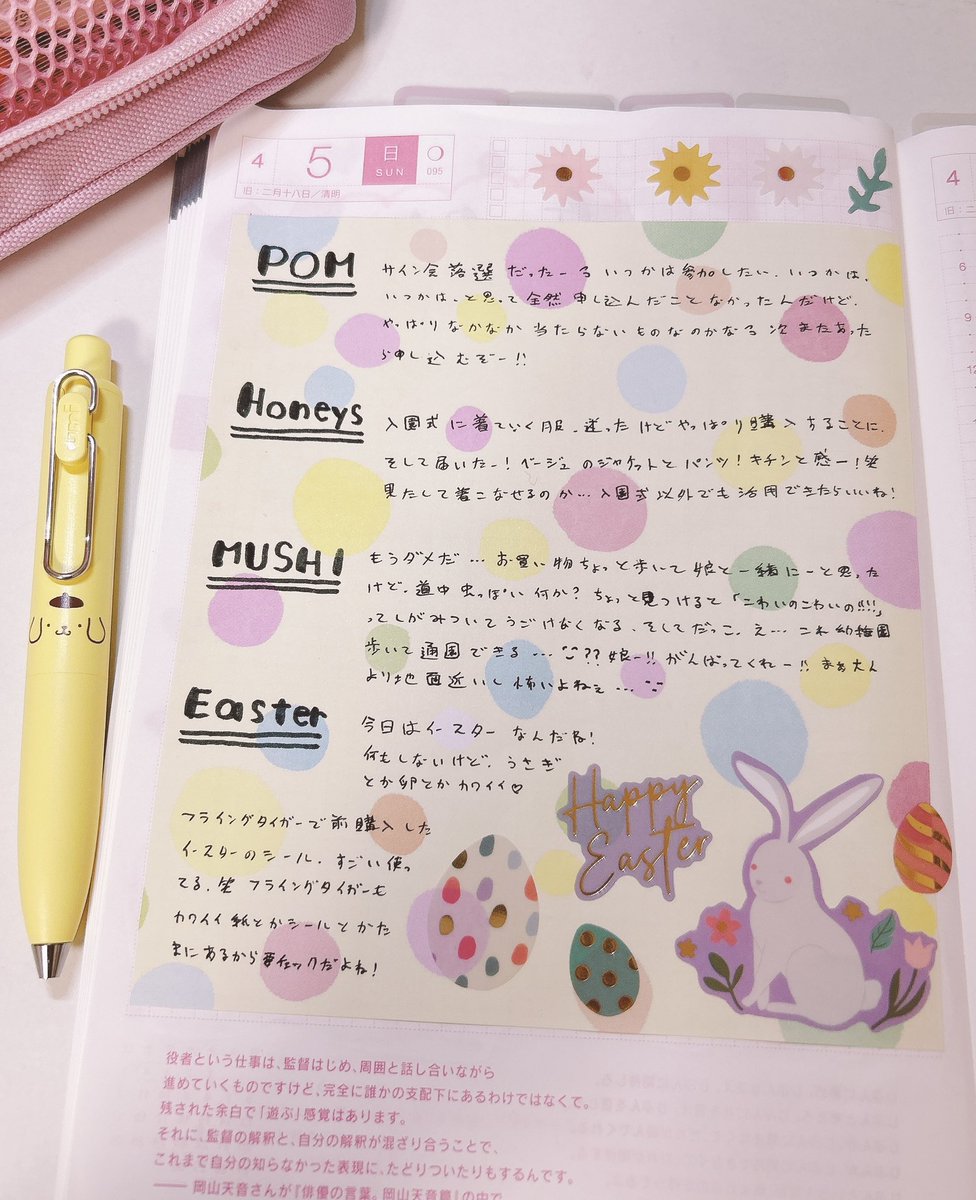 4 5 日 SUN 095
旧:二月十八日/清明
POM
サイン会 落選 だったーろ いつかは参加したい、いつかは、
いつかは、と思って全然 申し込んだこと なかったんだけど、
やっぱりなかなか 当たらないものなのかなる 次 またあった
ら申し込むぞー!!
Honeys
入園式 に着ていく服、迷ったけどやっぱり購入することに、
そして届いたー!ベージュのジャケットとパンツ!キチンと感ー!笑
果たして着こなせるのか…入園式以外でも活用できたらいいね!
MUSHI
もうダメだ…お買い物ちょっと歩いて娘と一緒にーと思った
けど、道中虫っぽい何か?ちょっと見つけるて「こわいのこわいの!!!!」
ってしがみついてうごけなくなる、そしてだっこ、え…これ幼稚園
歩いて通園できる…??娘ー!!がんばってくれー!!まぁ大人
より地面近いし怖いよねぇ…
Easter
今日はイースターなんだね!
何もしないけど、うさぎ
とか卵とかカワイイ♡
フライングタイガーで前購入した
イースターのシール、すごい使っ
てる、笑 フライングタイガーも
カワイイ紙とかシールとかた
まにあるから要チェックだよね!
Happy
Easter
役者という仕事は、監督はじめ、周囲と話し合いながら
進めていくものですけど、完全に誰かの支配下にあるわけではなくて。
残された余白で「遊ぶ」感覚はあります。
それに、監督の解釈と、自分の解釈が混ざり合うことで、
これまで自分の知らなかった表現に、たどりついたりもするんです。
―― 岡山天音さんが『俳優の言葉。岡山天音篇』の中で
4
旧:二
6
9
12
uni